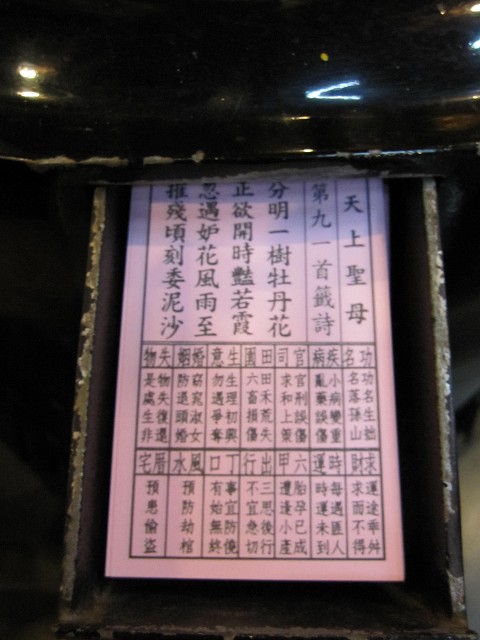 天上聖母
第九一首籤詩
分明一樹牡丹花
正欲開時豔若霞
忽遇妒花風雨至
摧殘頃刻委泥沙
功名
功名生拙
名落孫山
疾病
小病變重
亂藥誤傷
官司
官刑誤傷
求和上策
田園
田禾荒失
六畜損傷
生意
生理初興
勿遇爭奪
婚姻
窈窕淑女
防退頭婚
失物
物失復還
是處生非
求財
運途乖舛
求而不得
時運
每遇匪人
時運未到
六甲
胎孕已成
遭逢小產
出行
三思後行
不宜急切
丁口
事宜防僥
有始無終
風水
預防劫棺
厝宅
預患偷盜